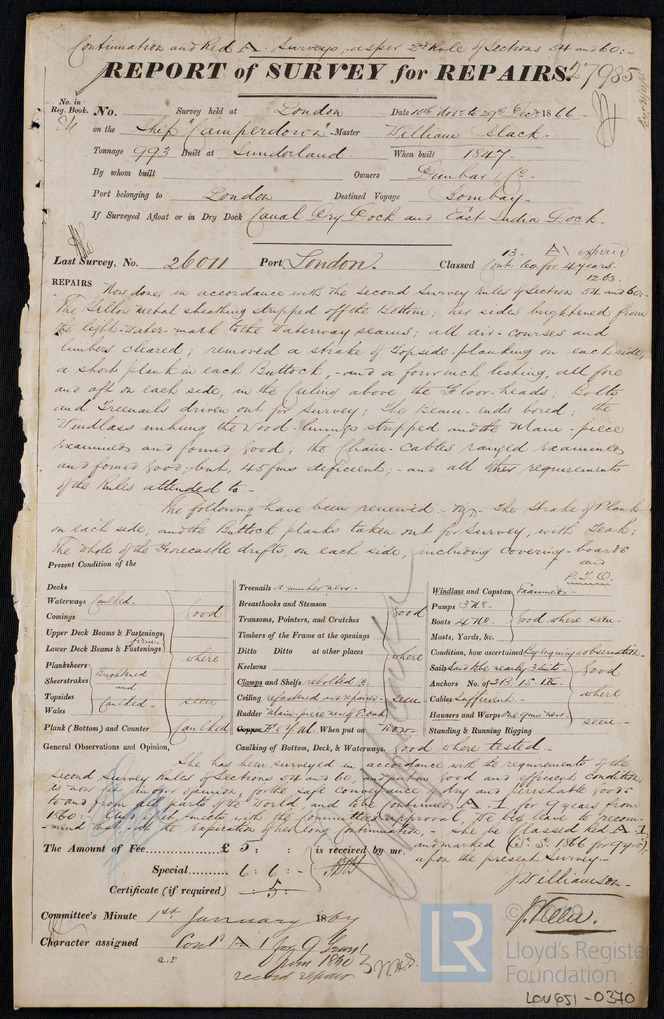 Continuation and Red A. Surveys, as per 2nd Rule of Sections 54 and 60:-
REPORT of SURVEY for REPAIRS. 27985
No. in Reg. Book.
No. Survey held at London Date 10th Novr to 29th Decr 1866-
on the Ship Camperdown - Master William Slack-
Tonnage 993 Built at Sunderland. When built 1847-
By whom built Owners Dunbar & Co.
Port belonging to London Destined Voyage Bombay-
If Surveyed Afloat or in Dry Dock Canal Dry Dock and East India Dock.
Last Survey, No. 26011 Port London. Classed 13- A expired
Cont 60 for 4 years
12.63.
REPAIRS Now done, in accordance with the second Survey Rules of Section 54 and 60:-
The Yellow metal sheathing stripped off the Bottom; her sides brightened from
the light-water-mark to the Waterway seams; all air-courses and
limbers cleared; removed a strake of Topside-planking on each side,
a short plank in each Buttock,- and a four inch listing, all fore
and aft on each side, in the ceiling above the Floor-heads; Bolts
and Treenails driven out for survey; the Beam-ends bored; the
Windlass unhung the wood-linings stripped and the Main-piece
examined and found good; the Chain-Cables ranged examined
and found good, but, 45 fms deficient;- and all other requirements
of the Rules attended to-
The following have been renewed:- The Strake of Plank
on each side, and the Buttock planks taken out for Survey, with Teak;
The whole of the Forecastle drifts, on each side, including Covering-boards
and
P.T.O.
Present Condition of the
Decks
Waterways Caulked.
Comings
Upper Deck Beams & Fastenings
Lower Deck Beams & Fastenings
firm
Planksheers
Sheerstrakes
Topsides
Wales
Brightened
and
Caulked-
Plank (Bottom) and Counter Caulked
good
where
seen
General Observations and Opinion,
Treenails a number new-
Breasthooks and Stemson
Transoms, Pointers, and Crutches
Timbers of the Frame at the openings
Ditto Ditto at other places
Keelsons
Clamps and Shelfs rebolted
Ceiling refastened and repaired-
Rudder Main-piece new of Teak
Copper Y.M. When put on Now-
Caulking of Bottom, Deck, & Waterways. Good where tested-
good
where
seen
Windlass and Capstan Examined-
Pumps 3 No-
Boats 4 No-
Masts, Yards, &c.
good where seen-
Condition, how ascertained By requisite observation-
Sails Said to be nearly 2 suits-
Anchors No. of 2B. 1S. 1K.
Cables Sufficient-
Hausers and Warps One quite new-
Standing & Running Rigging
good
where
seen-
She has been surveyed in accordance with the requirements of the
second Survey Rules of Sections 54 and 60, and put in good and efficient condition;
is now fit in our opinion, for the safe conveyance of dry and perishable goods
to and from all parts of the World, and to be continued A 1, for 9 years from
1860:- And if it meets with the Committee's approval, We beg leave to recom-
-mend that, at the expiration of her long Continuation,- she be classed Red A 1,
and marked for 9 years
upon the present Survey-
The Amount of Fee......£ 5 : :
Special.......... 6 : 6 : -
Certificate (if required) - 5 : -
is received by me,
J Williamson-
Committee's Minute 1st January 1867
Character assigned Contd A 1 for 9 Years
from 1860
record repairs
© 2019
LR
Lloyd's Register
Foundation
LON651-0370